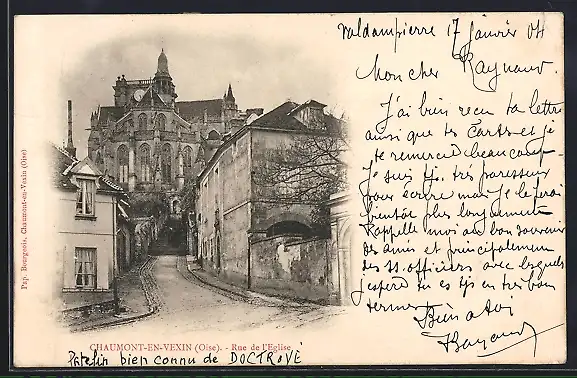 Valdampierre 17 Janvier 04
Mon cher Raynaud.
J'ai bien reçu ta lettre
ainsi que tes Cartes et je
te remercie beaucoup
Je suis tjs. très paresseux
pour écrire mais je le ferai
bientôt plus longuement
Rappelle moi au bon souvenir
des amis et principalement
des ss. officiers avec lesquels
j'espère tu es tjs en très bon
termes
Bien à toi
Pap. Bourgeois, Chaumont-en-Vexin (Oise)
CHAUMONT-EN-VEXIN (Oise). - Rue de l'Eglise
Patelin bien connu de DOCTROVÉ